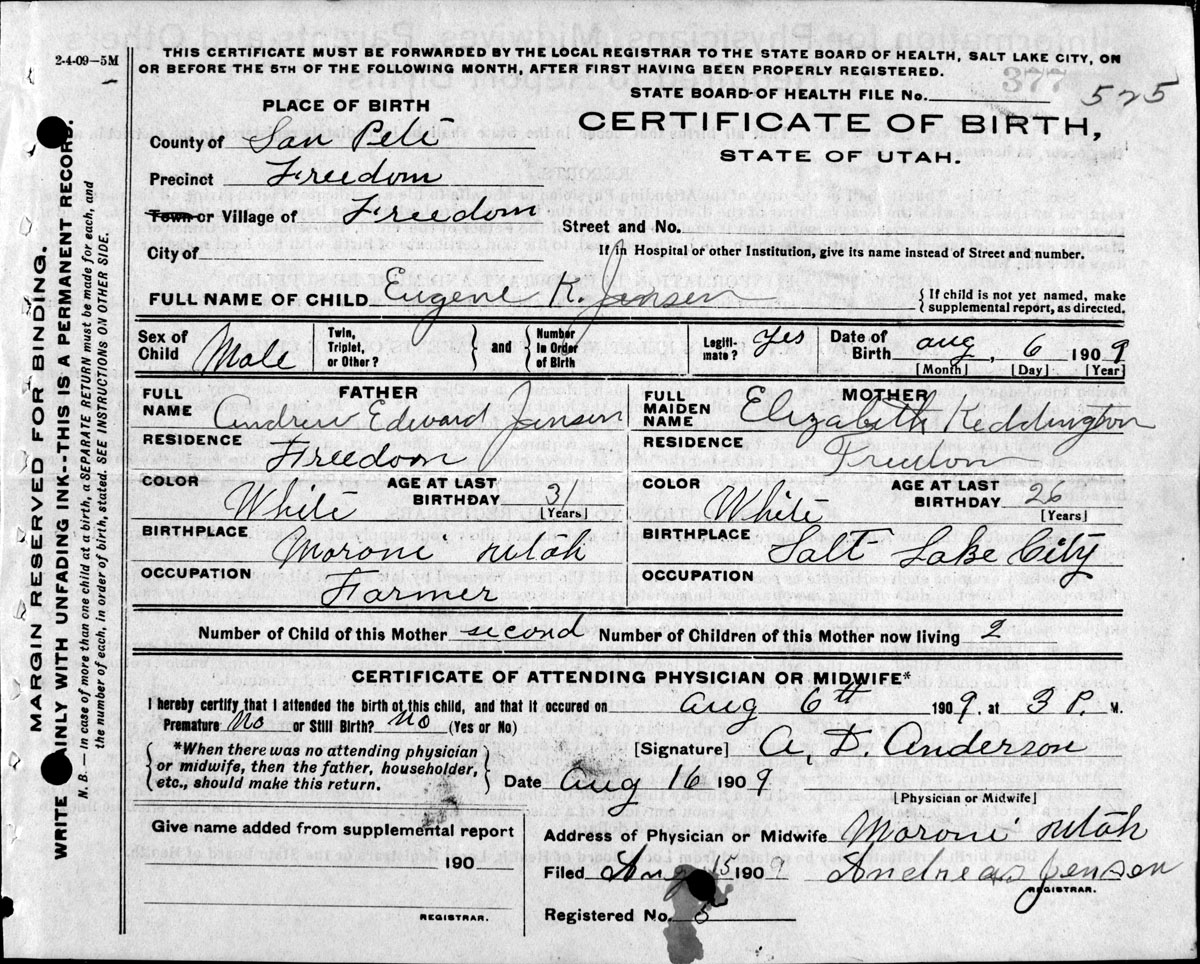 2-4-09—5M
THIS CERTIFICATE MUST BE FORWARDED BY THE LOCAL REGISTRAR TO THE STATE BOARD OF HEALTH, SALT LAKE CITY, ON
OR BEFORE THE 5TH OF THE FOLLOWING MONTH, AFTER FIRST HAVING BEEN PROPERLY REGISTERED.
377
STATE BOARD OF HEALTH FILE No. 525
PLACE OF BIRTH
CERTIFICATE OF BIRTH,
STATE OF UTAH.
County of San Pete
Precinct Freedom
Town or Village of Freedom
Street and No.
City of
If in Hospital or other Institution, give its name instead of Street and number.
FULL NAME OF CHILD Eugene K. Jensen
{If child is not yet named, make
supplemental report, as directed.
Sex of Child Male
Twin, Triplet, or Other?
} and {
Number in Order of Birth
Legiti-mate? Yes
Date of Birth Aug, 6 1909
[Month] [Day] [Year]
FATHER
FULL NAME Andrew Edward Jensen
RESIDENCE Freedom
COLOR White AGE AT LAST BIRTHDAY 31 [Years]
BIRTHPLACE Moroni Utah
OCCUPATION Farmer
MOTHER
FULL MAIDEN NAME Elizabeth Keddington
RESIDENCE Freedom
COLOR White AGE AT LAST BIRTHDAY 26 [Years]
BIRTHPLACE Salt Lake City
OCCUPATION
Number of Child of this Mother second Number of Children of this Mother now living 2
CERTIFICATE OF ATTENDING PHYSICIAN OR MIDWIFE*
I hereby certify that I attended the birth of this child, and that it occured on Aug 6th 1909. at 3 P. M.
Premature No or Still Birth? No (Yes or No)
{*When there was no attending physician
or midwife, then the father, householder,
etc., should make this return.}
[Signature] A. D. Anderson
Date Aug 16 1909
[Physician or Midwife]
Give name added from supplemental report
190
REGISTRAR.
Address of Physician or Midwife Moroni Utah
Filed Aug 15 1909 Andreas Jensen
REGISTRAR.
Registered No. 5
MARGIN RESERVED FOR BINDING.
WRITE AINLY WITH UNFADING INK--THIS IS A PERMANENT RECORD.
N. B. — In case of more than one child at a birth, a SEPARATE RETURN must be made for each, and
the number of each, in order of birth, stated. SEE INSTRUCTIONS ON OTHER SIDE.